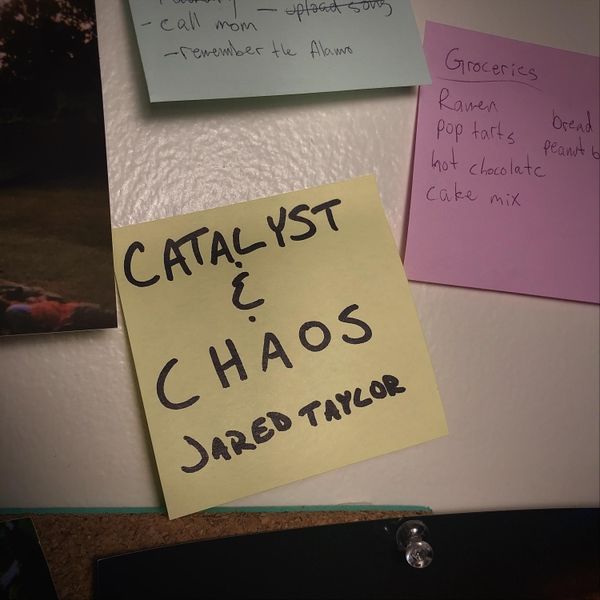 - upload song
- call mom
- remember the Alamo
Groceries
Ramen
pop tarts
hot chocolate
cake mix
bread
peanut b
CATALYST
&
CHAOS
JARED TAYLOR